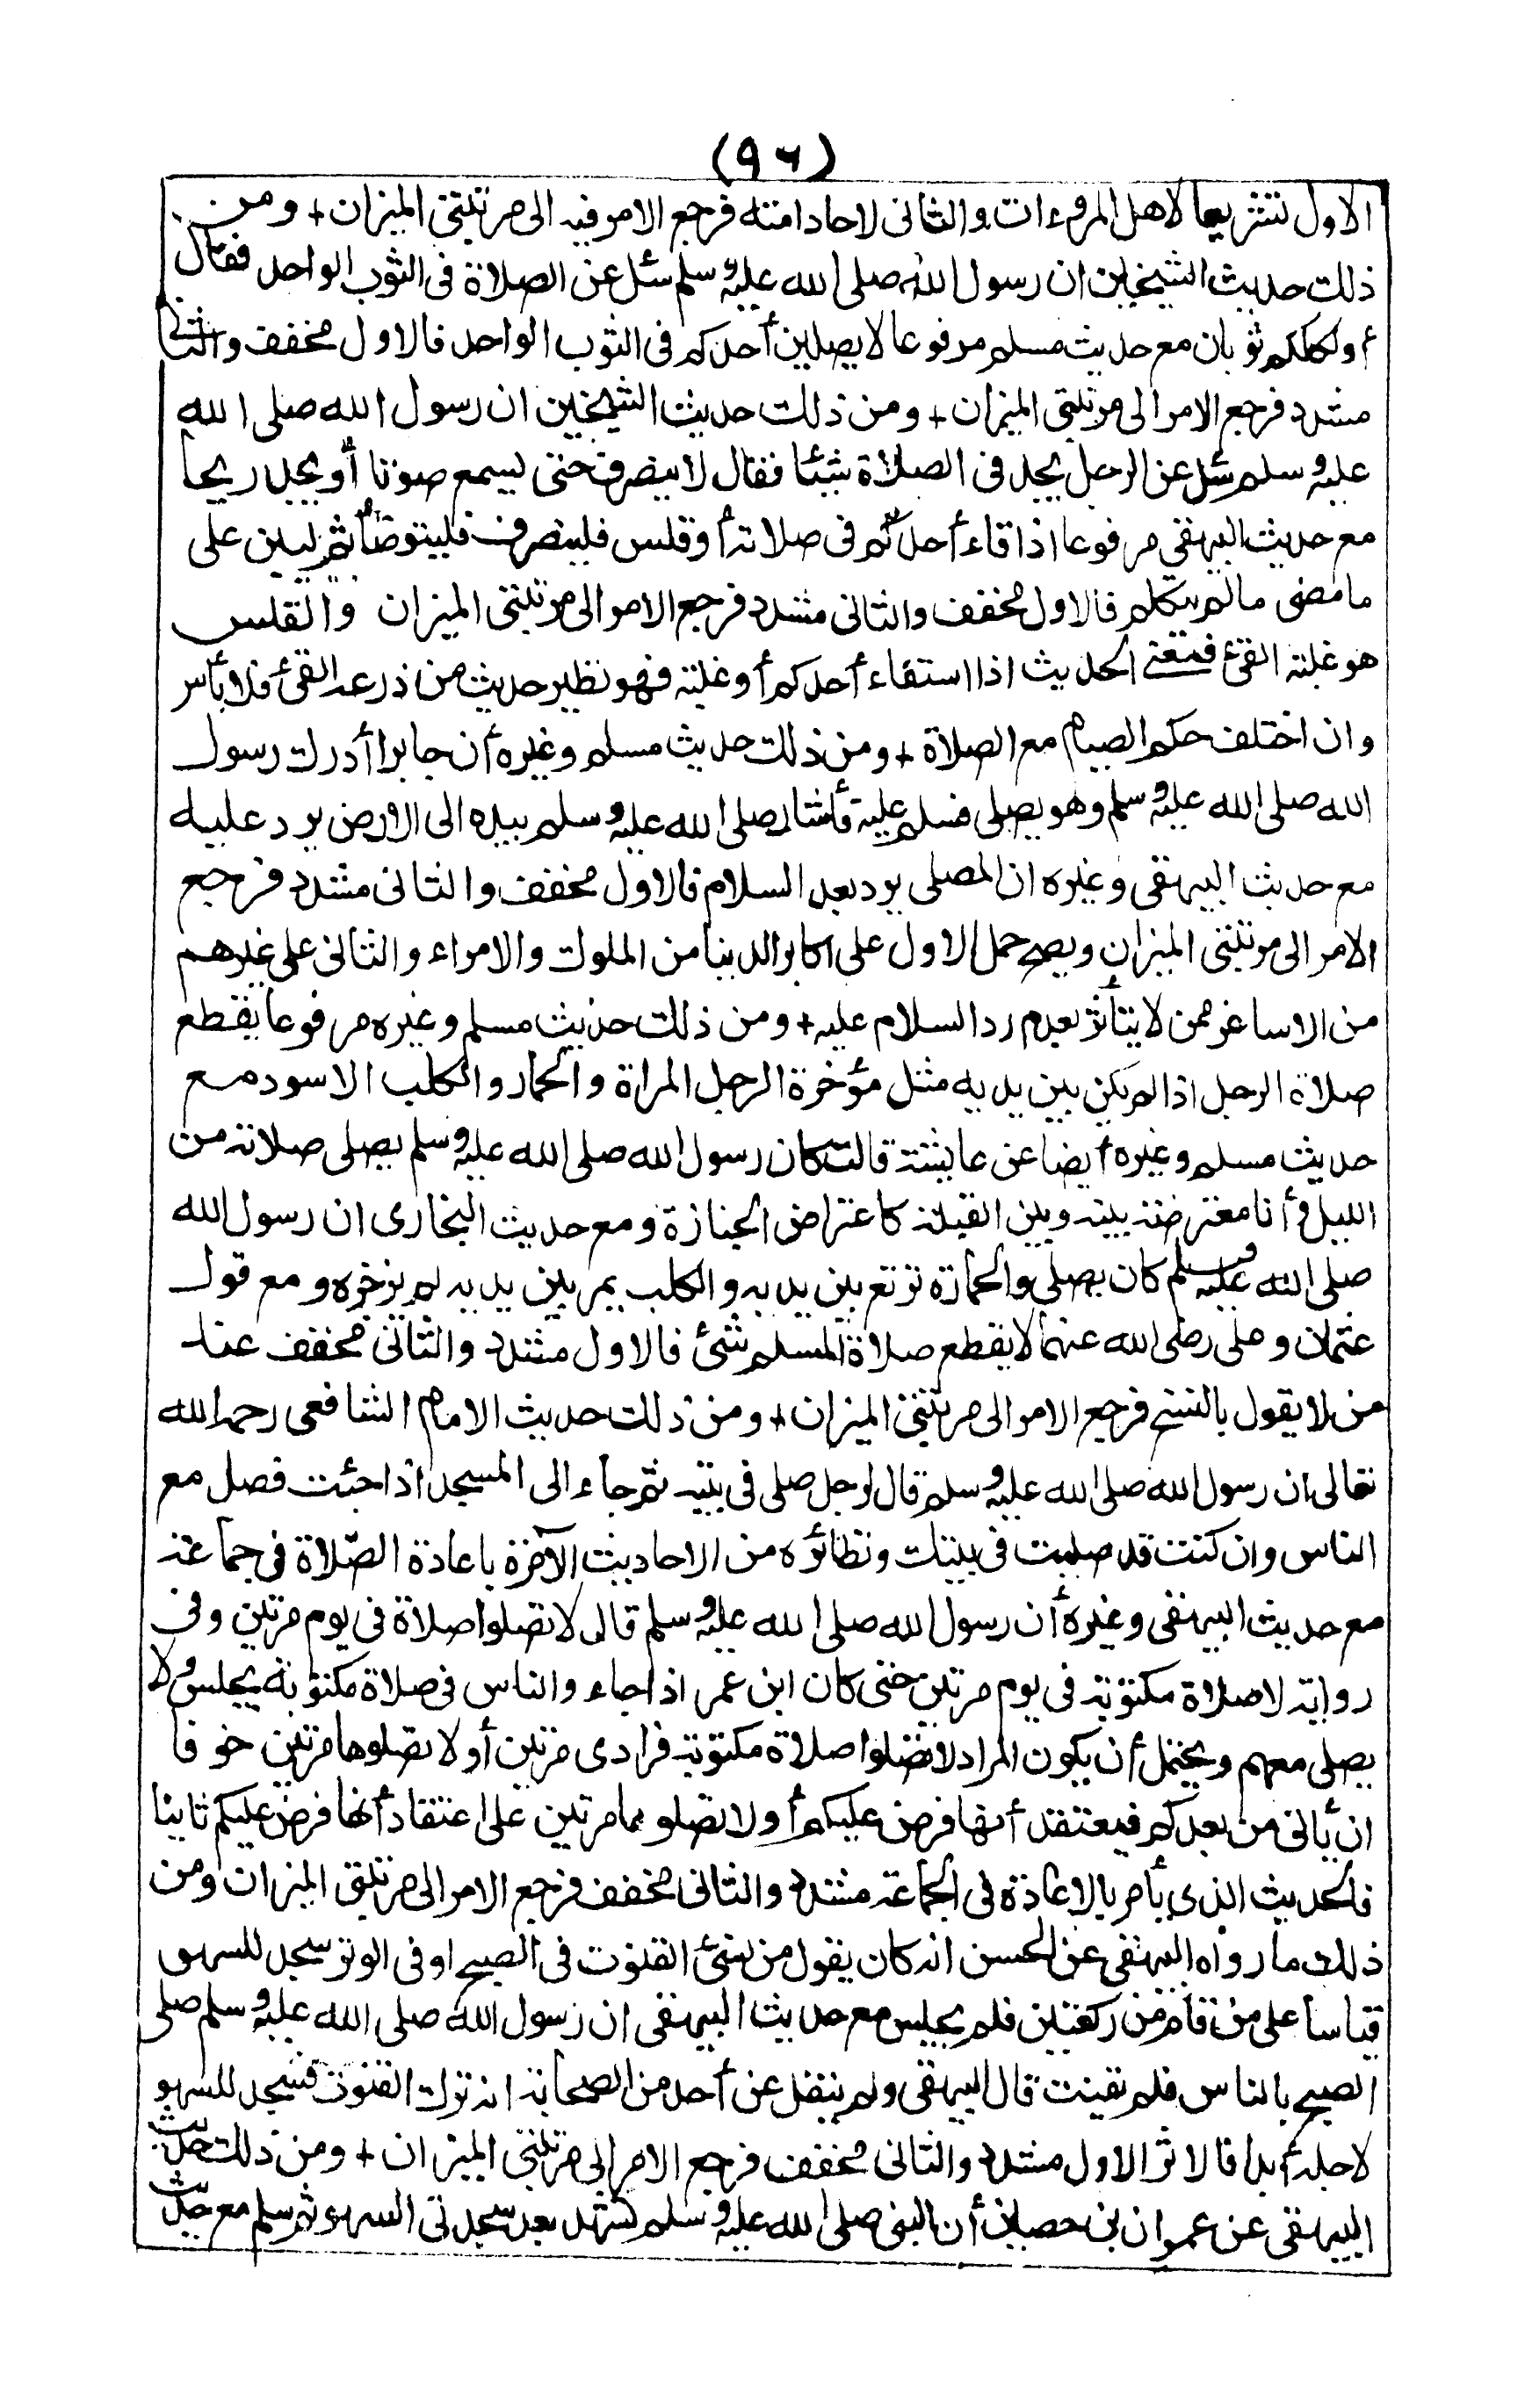 (٩٦)
الاول تشريعا لاهل المروءات والثانى لاحاد امته فرجع الامر فيه الى مرتبتى الميزان + ومن
ذلك حديث الشيخين ان رسول الله صلى الله عليه وسلم سئل عن الصلاة فى الثوب الواحد فقال
أولكلكم ثوبان مع حديث مسلم مرفوعا لا يصلين أحدكم فى الثوب الواحد فالاول مخفف والثانى
مشدد فرجع الامر الى مرتبتى الميزان + ومن ذلك حديث الشيخين ان رسول الله صلى الله
عليه وسلم سئل عن الرجل يجد فى الصلاة شيئا فقال لا ينصرف حتى يسمع صوتا أو يجد ريحا
مع حديث البيهقى مرفوعا اذا قاء أحدكم فى صلاته أو قلس فلينصرف فليتوضأ ثم ليبن على
ما مضى ما لم يتكلم فالاول مخفف والثانى مشدد فرجع الامر الى مرتبتى الميزان والقلس
هو غلبة القئ فمعنى الحديث اذا استقاء أحدكم أو غلبه فهو نظير حديث من ذرعه القئ فلا بأس
وان اختلف حكم الصيام مع الصلاة + ومن ذلك حديث مسلم وغيره أن جابرا أدرك رسول
الله صلى الله عليه وسلم وهو يصلى فسلم عليه فأشار صلى الله عليه وسلم بيده الى الارض يرد عليه
مع حديث البيهقى وغيره ان المصلى يرد بعد السلام فالاول مخفف والثانى مشدد فرجع
الامر الى مرتبتى الميزان ويصح حمل الاول على اكابر الدنيا من الملوك والامراء والثانى على غيرهم
من الاساغر ممن لا يتأثر بعدم رد السلام عليه + ومن ذلك حديث مسلم وغيره مرفوعا يقطع
صلاة الرجل اذا لم يكن بين يديه مثل مؤخرة الرحل المراة والحمار والكلب الاسود مع
حديث مسلم وغيره أيضا عن عايشة قالت كان رسول الله صلى الله عليه وسلم يصلى صلاته من
الليل وأنا معترضة بينه وبين القبلة كاعتراض الجنازة ومع حديث البخارى ان رسول الله
صلى الله عليه وسلم كان يصلى والحمارة ترتع بين يديه والكلب يمر بين يديه لم يزجره ومع قول
عثمان وعلى رضى الله عنهما لا يقطع صلاة المسلم شئ فالاول مشدد والثانى مخفف عند
من لا يقول بالنسخ فرجع الامر الى مرتبتى الميزان + ومن ذلك حديث الامام الشافعى رحمه الله
تعالى ان رسول الله صلى الله عليه وسلم قال لرجل صلى فى بيته ثم جاء الى المسجد اذا جئت فصل مع
الناس وان كنت قد صليت فى بيتك ونظائره من الاحاديث الآمرة باعادة الصلاة فى جماعة
مع حديث البيهقى وغيره أن رسول الله صلى الله عليه وسلم قال لا تصلوا صلاة فى يوم مرتين وفى
رواية لا صلاة مكتوبة فى يوم مرتين حتى كان ابن عمر اذا جاء والناس فى صلاة مكتوبة يجلس ولا
يصلى معهم ويحتمل أن يكون المراد لا تصلوا صلاة مكتوبة فرادى مرتين أو لا تصلوها مرتين خوفا
ان يأتى من بعدكم فيعتقد أنها فرض عليكم أو لا تصلوهما مرتين على اعتقاد أنها فرض عليكم ثانيا
فالحديث الذى يأمر بالاعادة فى الجماعة مشدد والثانى مخفف فرجع الامر الى مرتبتى الميزان ومن
ذلك ما رواه البيهقى عن الحسن انه كان يقول من نسئ القنوت فى الصبح او فى الوتر سجد للسهو
قياسا على من قام من ركعتين فلم يجلس مع حديث البيهقى ان رسول الله صلى الله عليه وسلم صلى
الصبح بالناس فلم يقنت قال البيهقى ولم ينقل عن أحد من الصحابة انه ترك القنوت فسجد للسهو
لاجله أبدا فالاثر الاول مشدد والثانى مخفف فرجع الامر الى مرتبتى الميزان + ومن ذلك حديث
البيهقى عن عمران بن حصين أن النبى صلى الله عليه وسلم تشهد بعد سجدتى السهو ثم سلم مع حديث